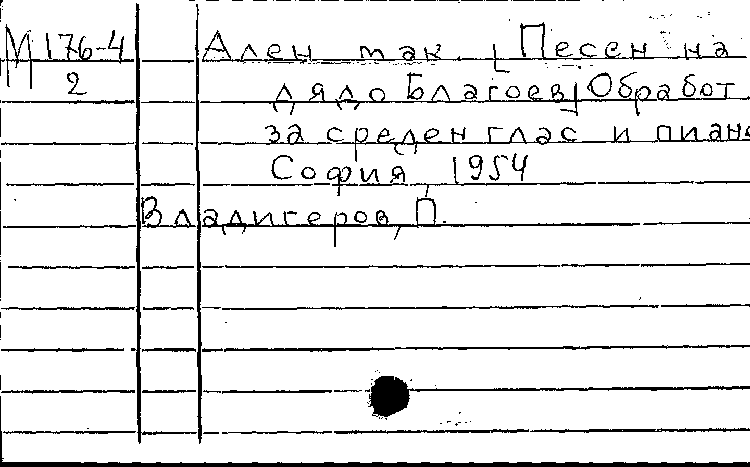 М 176-4 Ален мак. [Песен на
2 дядо Благоев] Обработ
за среден глас и пиано
София, 1954
Владигеров, П.